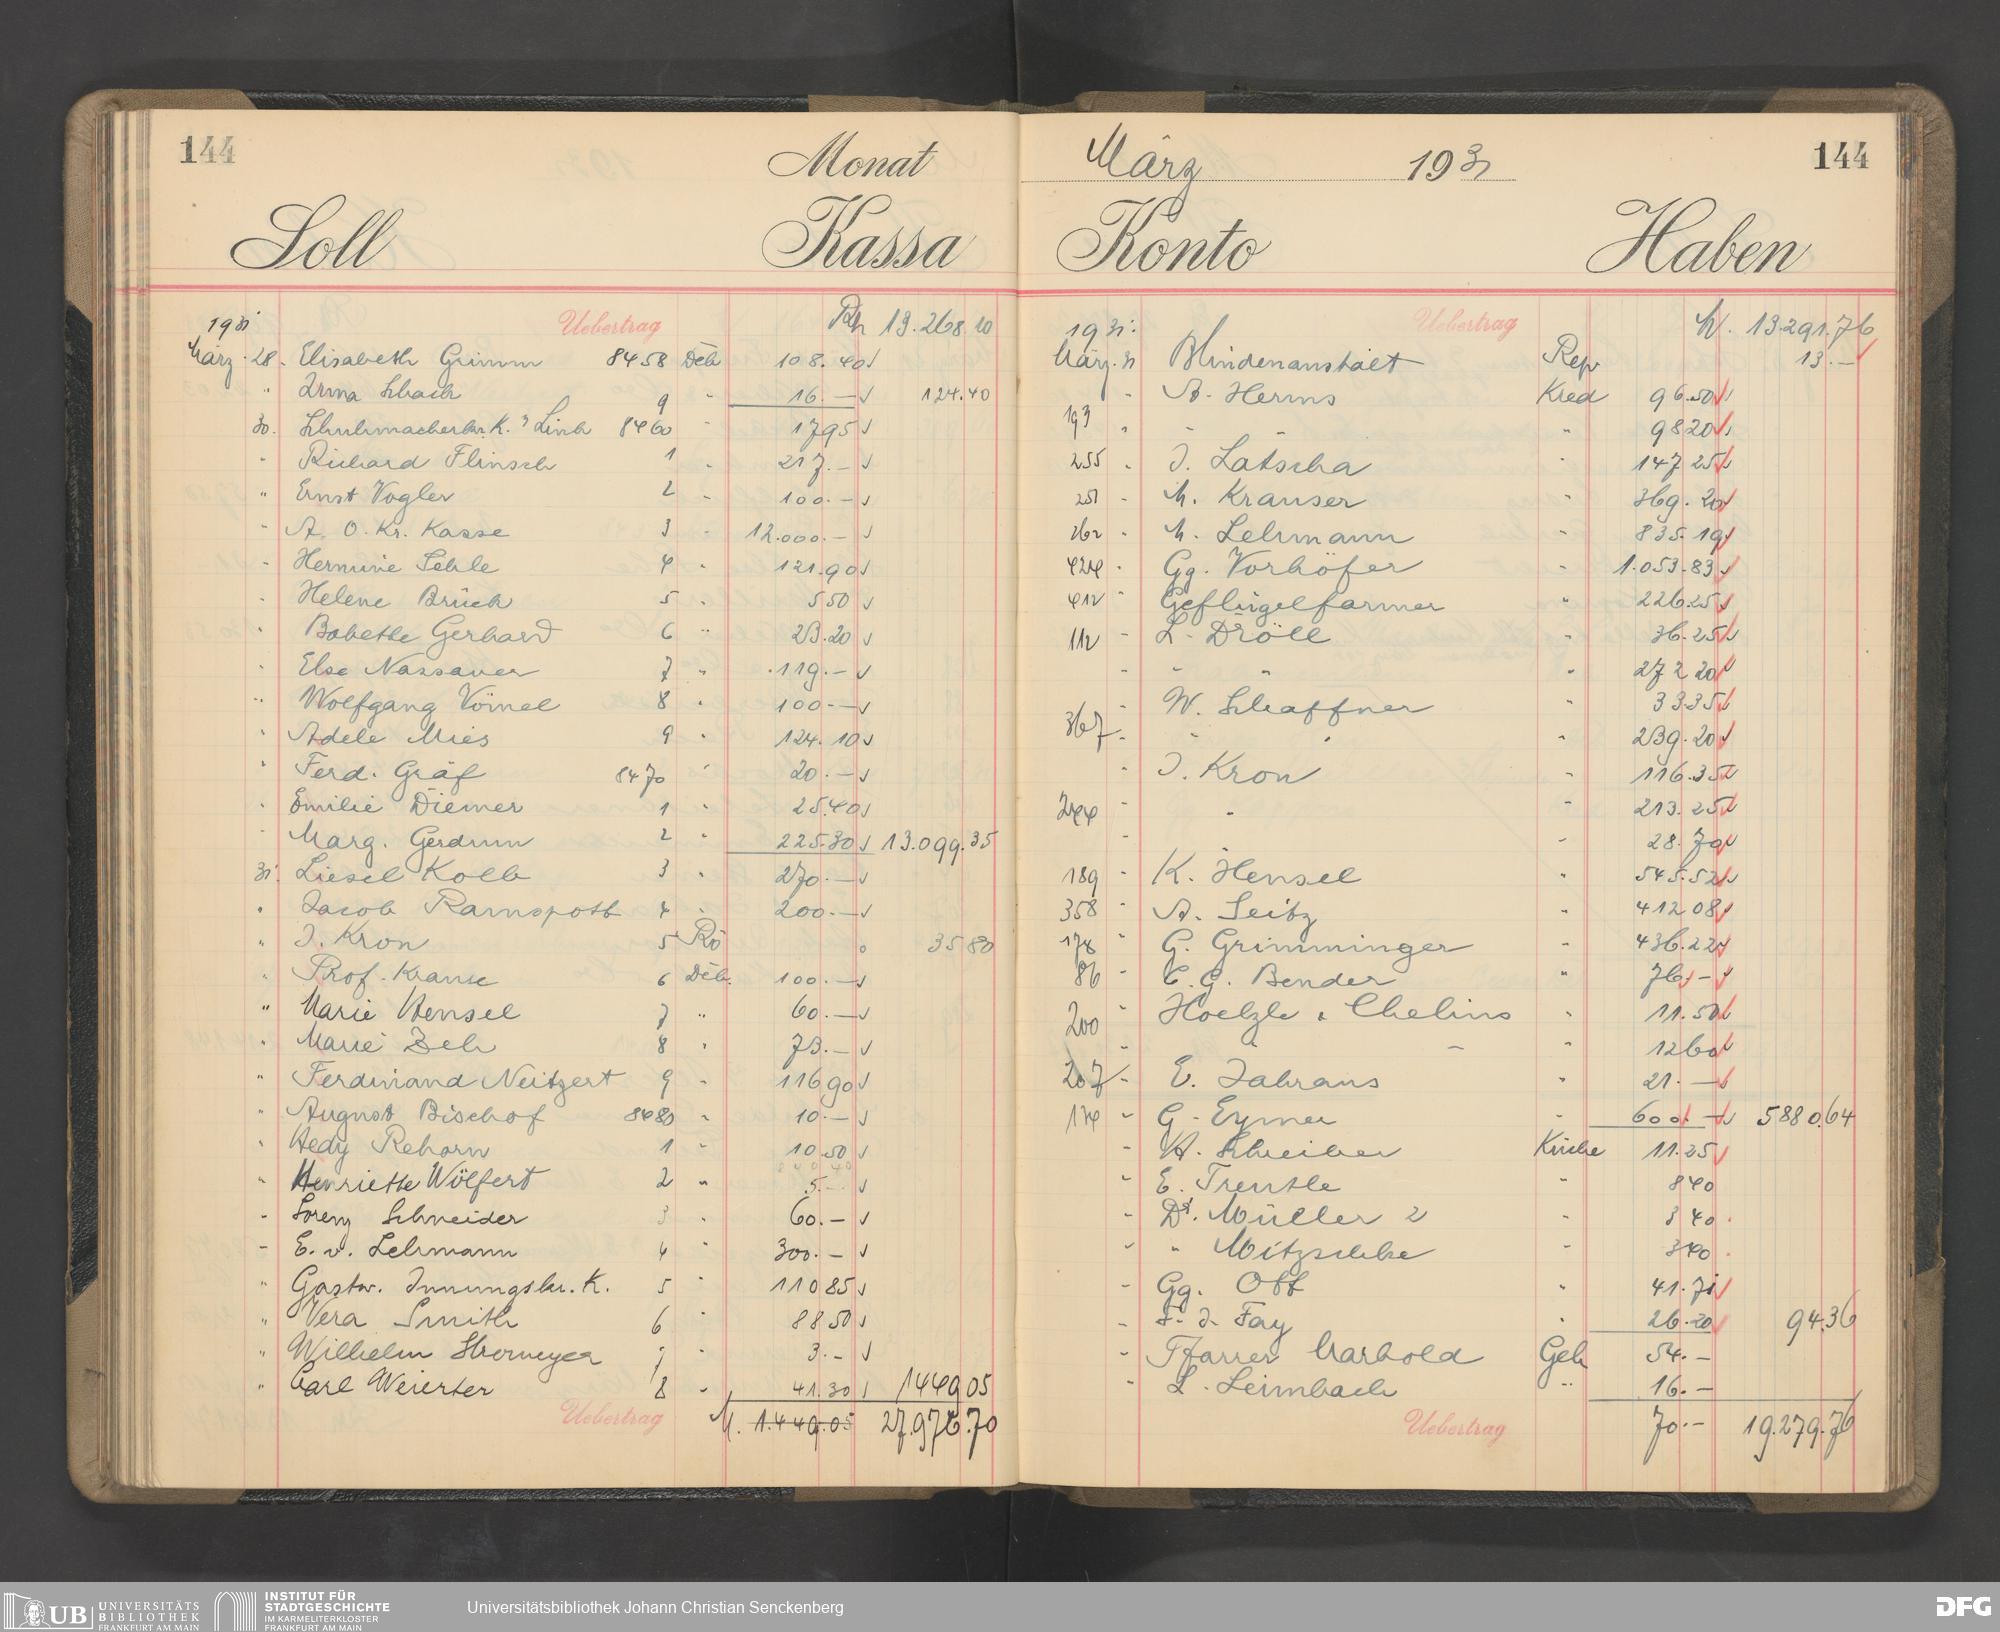 144
Monat
Soll Kassa
1931 Uebertrag 13.268.10
März 28. Elisabeth Grimm 8458 Deb 108.40
" Irma Schach 9 " 16.— 124.40
30. Schuhmacher K. Linh 8460 " 17 95
" Richard Flinsch 1 " 217.—
" Ernst Vogler 2 " 100.—
" A. O. Kr. Kasse 3 " 12.000.—
" Hermine Sehle 4 " 121.90
" Helene Brück 5 " 5 50
" Babette Gerhard 6 " 23.20
" Else Nassauer 7 " 119.—
" Wolfgang Vömel 8 " 100.—
" Adele Mies 9 " 124.10
" Ferd. Gräf 8470 " 20.—
" Emilie Diemer 1 " 25.40
" Marg. Gerdrun 2 " 225.30 13.099.35
31. Liesel Kolb 3 " 270.—
" Jacob Ramspott 4 " 200.—
" J. Kron 5 Rö 35 80
" Prof. Krause 6 Deb. 100.—
" Marie Hensel 7 " 60.—
" Marie Zeh 8 " 73.—
" Ferdinand Neitzert 9 " 116 90
" August Bischof 8480 " 10.—
" Hedy Rehorn 1 " 10.50
" Henriette Wölfert 2 " 5.—
" Lorenz Schneider 3 " 60.—
" E. v. Lehmann 4 " 300.—
" Gastw. Innungskr. K. 5 " 110 85
" Vera Smith 6 " 88 50
" Wilhelm Stromeyer 7 " 3.—
" Carl Weierter 8 " 41.30 1449 05
Uebertrag M. 1.449.05 27.976.70
März 1931 144
Konto Haben
1931. Uebertrag M. 13.291.76
März. 31 Blindenanstalt Rep 13.—
" A. Herms Kred 96.50
193 " " " 98 20
255 " J. Lätscha " 147 25
251 " M. Krauser " 369.20
262 " M. Lehmann " 835.19
424 " Gg. Vorhöfer " 1.053.83
412 " Geflügelfarmer " 226.25
112 " L. Dröll " 36.25
" " " " 272 20
" W. Schaffner " 33 35
367 " " " " 239.20
" J. Kron " 116.35
244 " " " 213.25
" " " 28.70
189 " K. Hensel " 545.52
358 " A. Seitz " 412 08
178 " G. Grimminger " 436.22
86 " C. G. Bender " 76.—
200 " Hoelzle & Chelius " 11.50
" " " 12 60
207 " E. Jahraus " 21.—
174 " G. Eymer " 600.— 5880.64
" H. Schreiber Küche 11.25
" E. Trentle " 8 40
" Dr. Müller 2 " 3 40
" " Mitzschke " 3 40
" Gg. Ott " 41.71
" F. J. Fay " 26.20 94.36
" Pfarrer Marhold Geh 54.—
" L. Leimbach " 16.—
Uebertrag 70.— 19.279.76
UB UNIVERSITÄTS
BIBLIOTHEK
FRANKFURT AM MAIN
INSTITUT FÜR
STADTGESCHICHTE
IM KARMELITERKLOSTER
FRANKFURT AM MAIN
Universitätsbibliothek Johann Christian Senckenberg
DFG